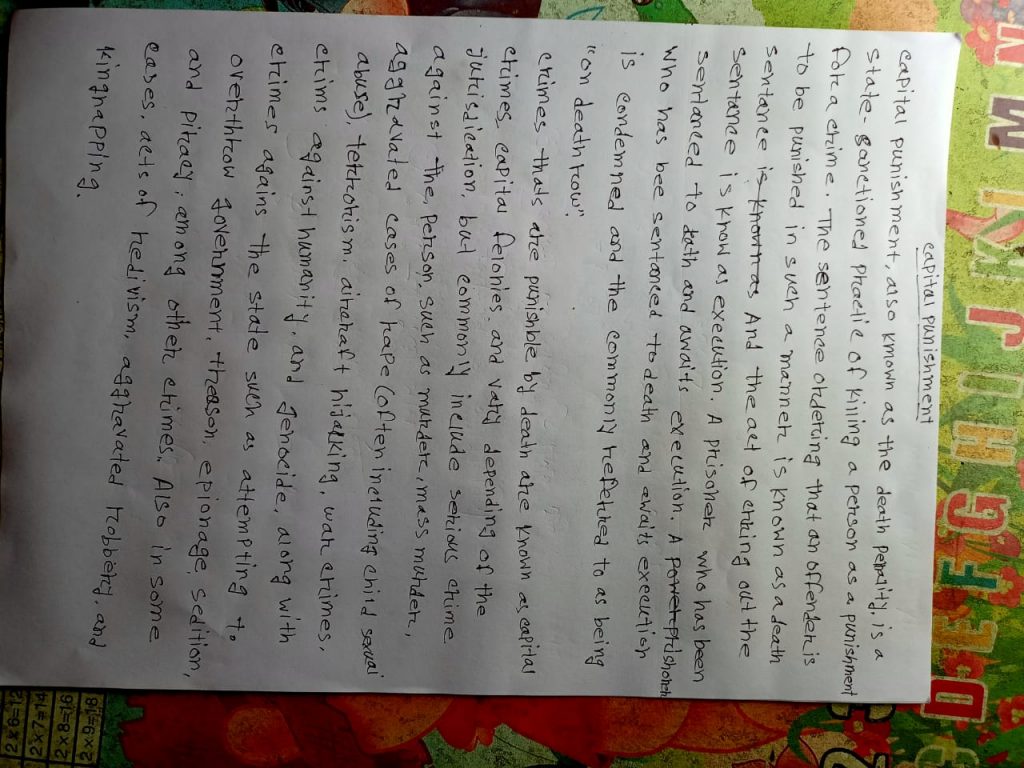 capital punishment
capital punishment, also known as the death penality, is a
state-sanctioned practic of killing a person as a punishment
for a crime. The sentence ordering that an offender is
to be punished in such a manner is known as a death
sentance is known as And the act of crking out the
sentance is know as execution. A prisoner who has been
sentanced to death and awaits execution. A
who has bee sentanced to death and awaits execution
is condemned and the commonly refetred to as being
"on death row".
crimes thats are punishble by death are known as capital
crimes, capital felonies, and vary depending of the
jurisdication, but commonly include serious chime
against the, person, such as murder, mass murder,
aggravated cases of rape (often including child sexual
abuse), terrorism. aircraft hijalking, war crimes,
crims against humanity, and genocide, along with
crimes agains the state such as attempting to
overthrow government, treason, epionage, sedition,
and piracy, among other crimes. Also in some
cases, acts of redivism, aggravated robbery, and
kingnapping.
D E F G H I J K L M N
2 x 6 = 12
2 x 7 = 14
2 x 8 = 16
2 x 9 = 18